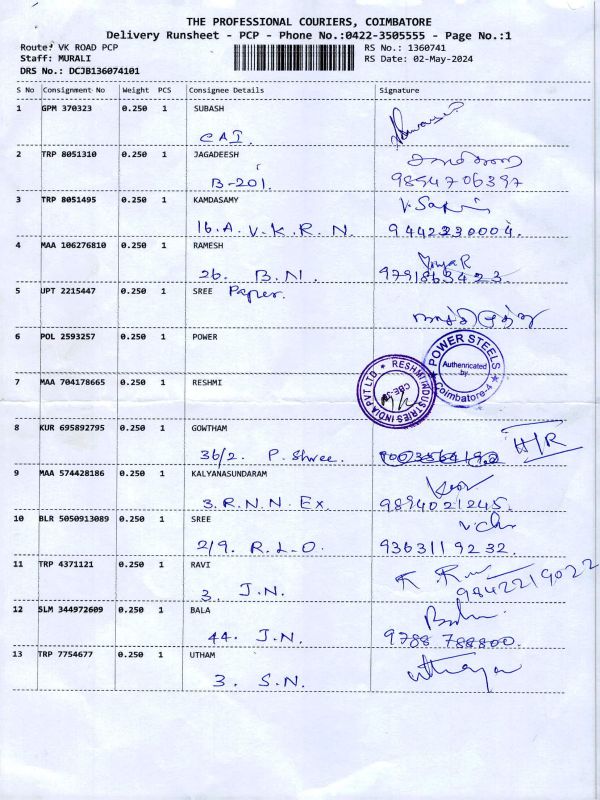 THE PROFESSIONAL COURIERS, COIMBATORE
Delivery Runsheet - PCP - Phone No.:0422-3505555 - Page No.:1
Route: VK ROAD PCP RS No.: 1360741
Staff: MURALI RS Date: 02-May-2024
DRS No.: DCJB136074101
S No Consignment No Weight PCS Consignee Details Signature
1 GPM 370323 0.250 1 SUBASH
CAI.
2 TRP 8051310 0.250 1 JAGADEESH
B-201. 9894706397
3 TRP 8051495 0.250 1 KAMDASAMY
16.A. V.K.R.N. 9442230004.
4 MAA 106276810 0.250 1 RAMESH
26. B.N. 9791863423
5 UPT 2215447 0.250 1 SREE Paper.
6 POL 2593257 0.250 1 POWER
POWER STEELS
Authenricated
by
Coimbatore-4
7 MAA 704178665 0.250 1 RESHMI
RESHMI INDUSTRIES INDIA PVT LTD
CBE-
8 KUR 695892795 0.250 1 GOWTHAM
36/2. P. Shree. H/R
9 MAA 574428186 0.250 1 KALYANASUNDARAM
3. R.N.N. Ex 9894021245.
10 BLR 5050913089 0.250 1 SREE
2/9. R.L.O. 9363119232.
11 TRP 4371121 0.250 1 RAVI
3. J.N. 9842219022
12 SLM 344972609 0.250 1 BALA
44. J.N. 9788 788800.
13 TRP 7754677 0.250 1 UTHAM
3. S.N.